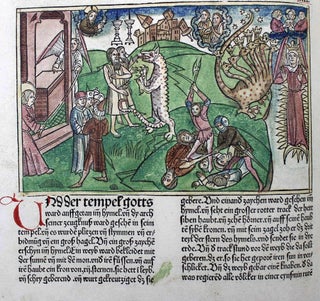 Und der tempel gotts
ward auffgetan im hymel. vñ dy arch
seiner zeugknuß ward gesehē in seim
tempel. vñ es wurdē plitzen vñ stymmen vñ er
bidmūg vñ ein groß hagel. Vñ ein groß zayche
erschein im hymel. ein weyb bekleidet mit
der sunnē vñ der mon vnd irē füssen. vñ auf
irē haubt ein kron von .xij. sternen. sie het i leyb.
vñ schry geberend. vñ wart gekreutziget dz sie
gebere. Und ein and zaychen ward gesehen im
hymel. vñ seht ein grosser rotter track der het
siben haubt. vñ zehē hörner. vñ auff seinē haub
tē sybē kronen. vñ mit seinē zagel zoh er dz drit
teyl der stern des hymels. vñ sendet sie in die
erden. Vñ d track stund vor dē weyb. dy do was
geberen. so sie geperd dz er iren sun in ver
schlicket. Vñ dz weyb gebar eine knabē. d do
was regieren alle völcker in einer eysnin rutē